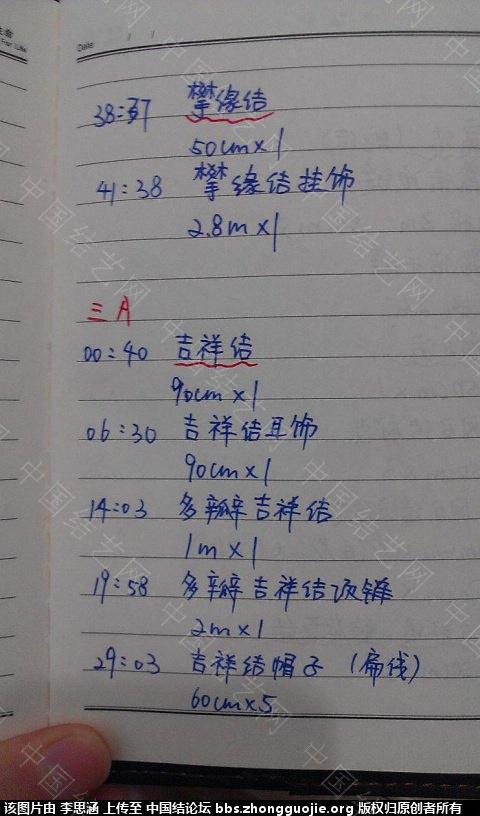 Date / /
攀缘结
50cm×1
41:38 攀缘结挂饰
2.8m×1
三 A
00:40 吉祥结
90cm×1
06:30 吉祥结耳饰
90cm×1
14:03 多瓣吉祥结
1m×1
19:58 多瓣吉祥结项链
2m×1
29:03 吉祥结帽子（扁线）
60cm×5
该图片由 李思涵 上传至 中国结论坛 bbs.zhongguojie.org 版权归原创者所有